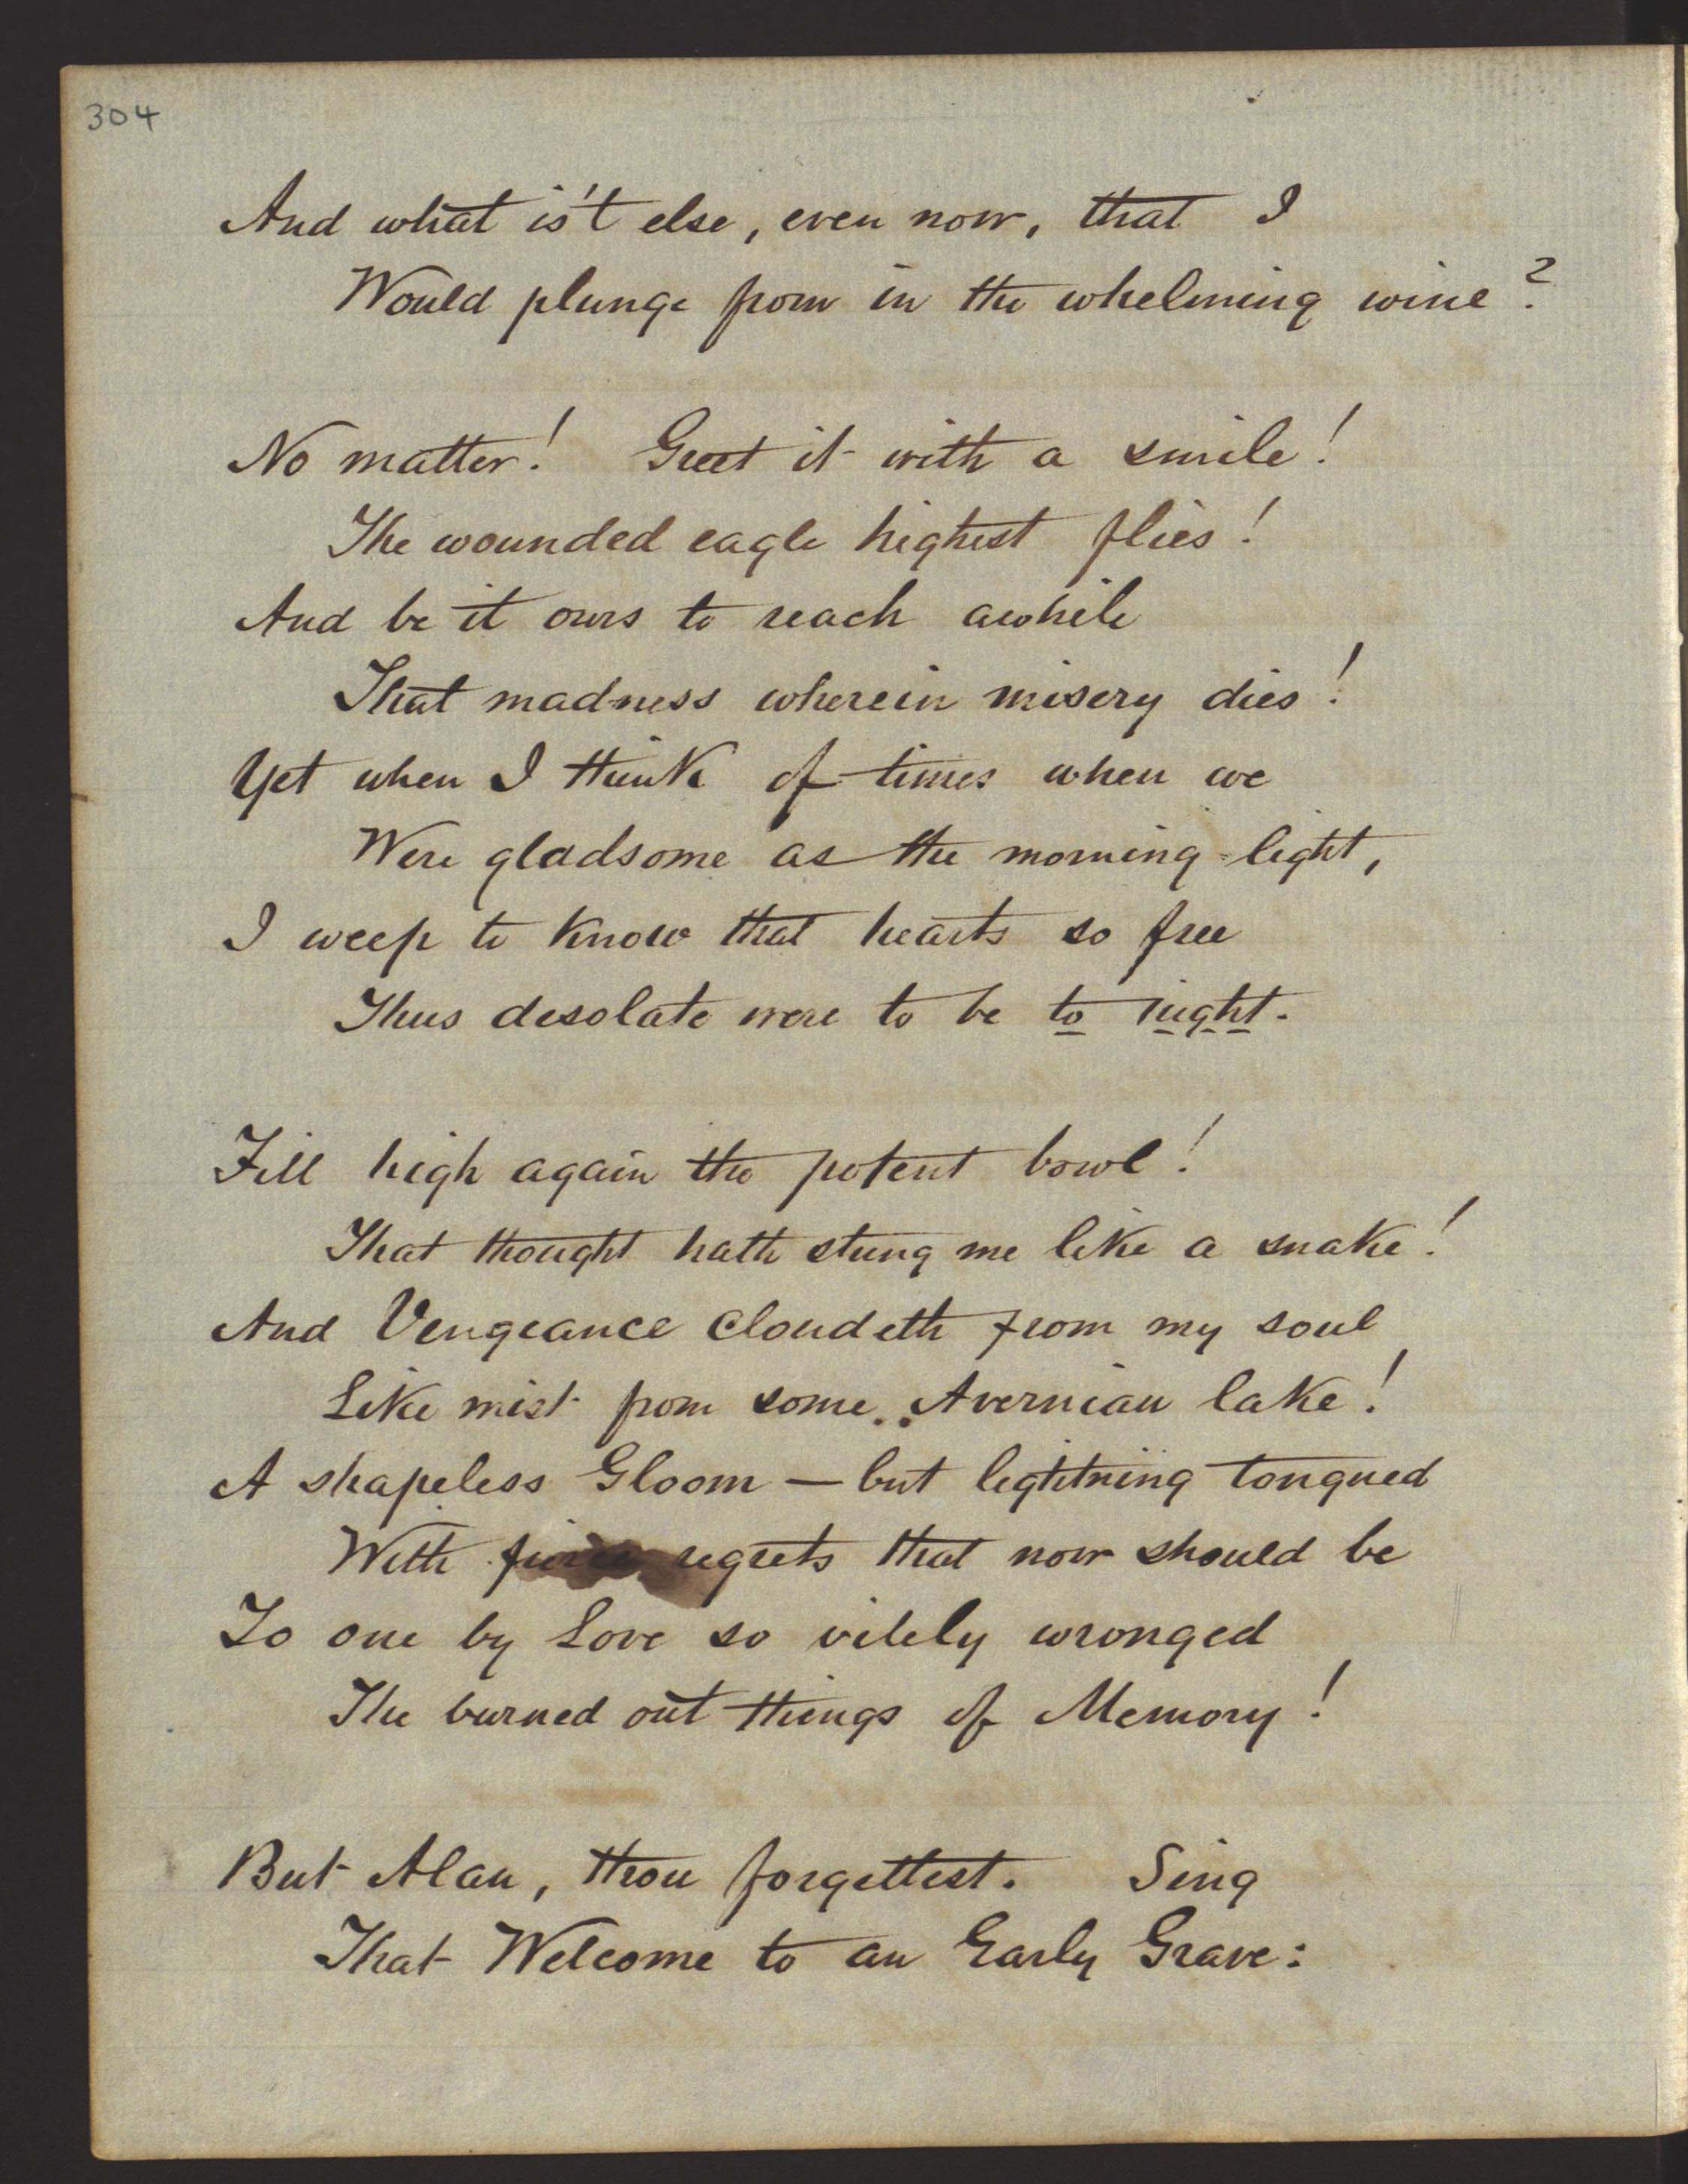 304
And what is't else, even now, that I
Would plunge from in the whelming wine?
No matter! Greet it with a smile!
The wounded eagle highest flies!
And be it ours to reach awhile
That madness wherein misery dies!
Yet when I think of times when we
Were gladsome as the morning light,
I weep to know that hearts so free
Thus desolate were to be to night.
Fill high again the potent bowl!
That thought hath stung me like a snake!
And Vengeance cloudeth from my soul
Like mist from some Avernian lake!
A shapeless Gloom — but lightning tongued
With fierce regrets that now should be
To one by Love so vilely wronged
The burned out things of Memory!
But Alan, thou forgettest. Sing
That Welcome to an Early Grave: